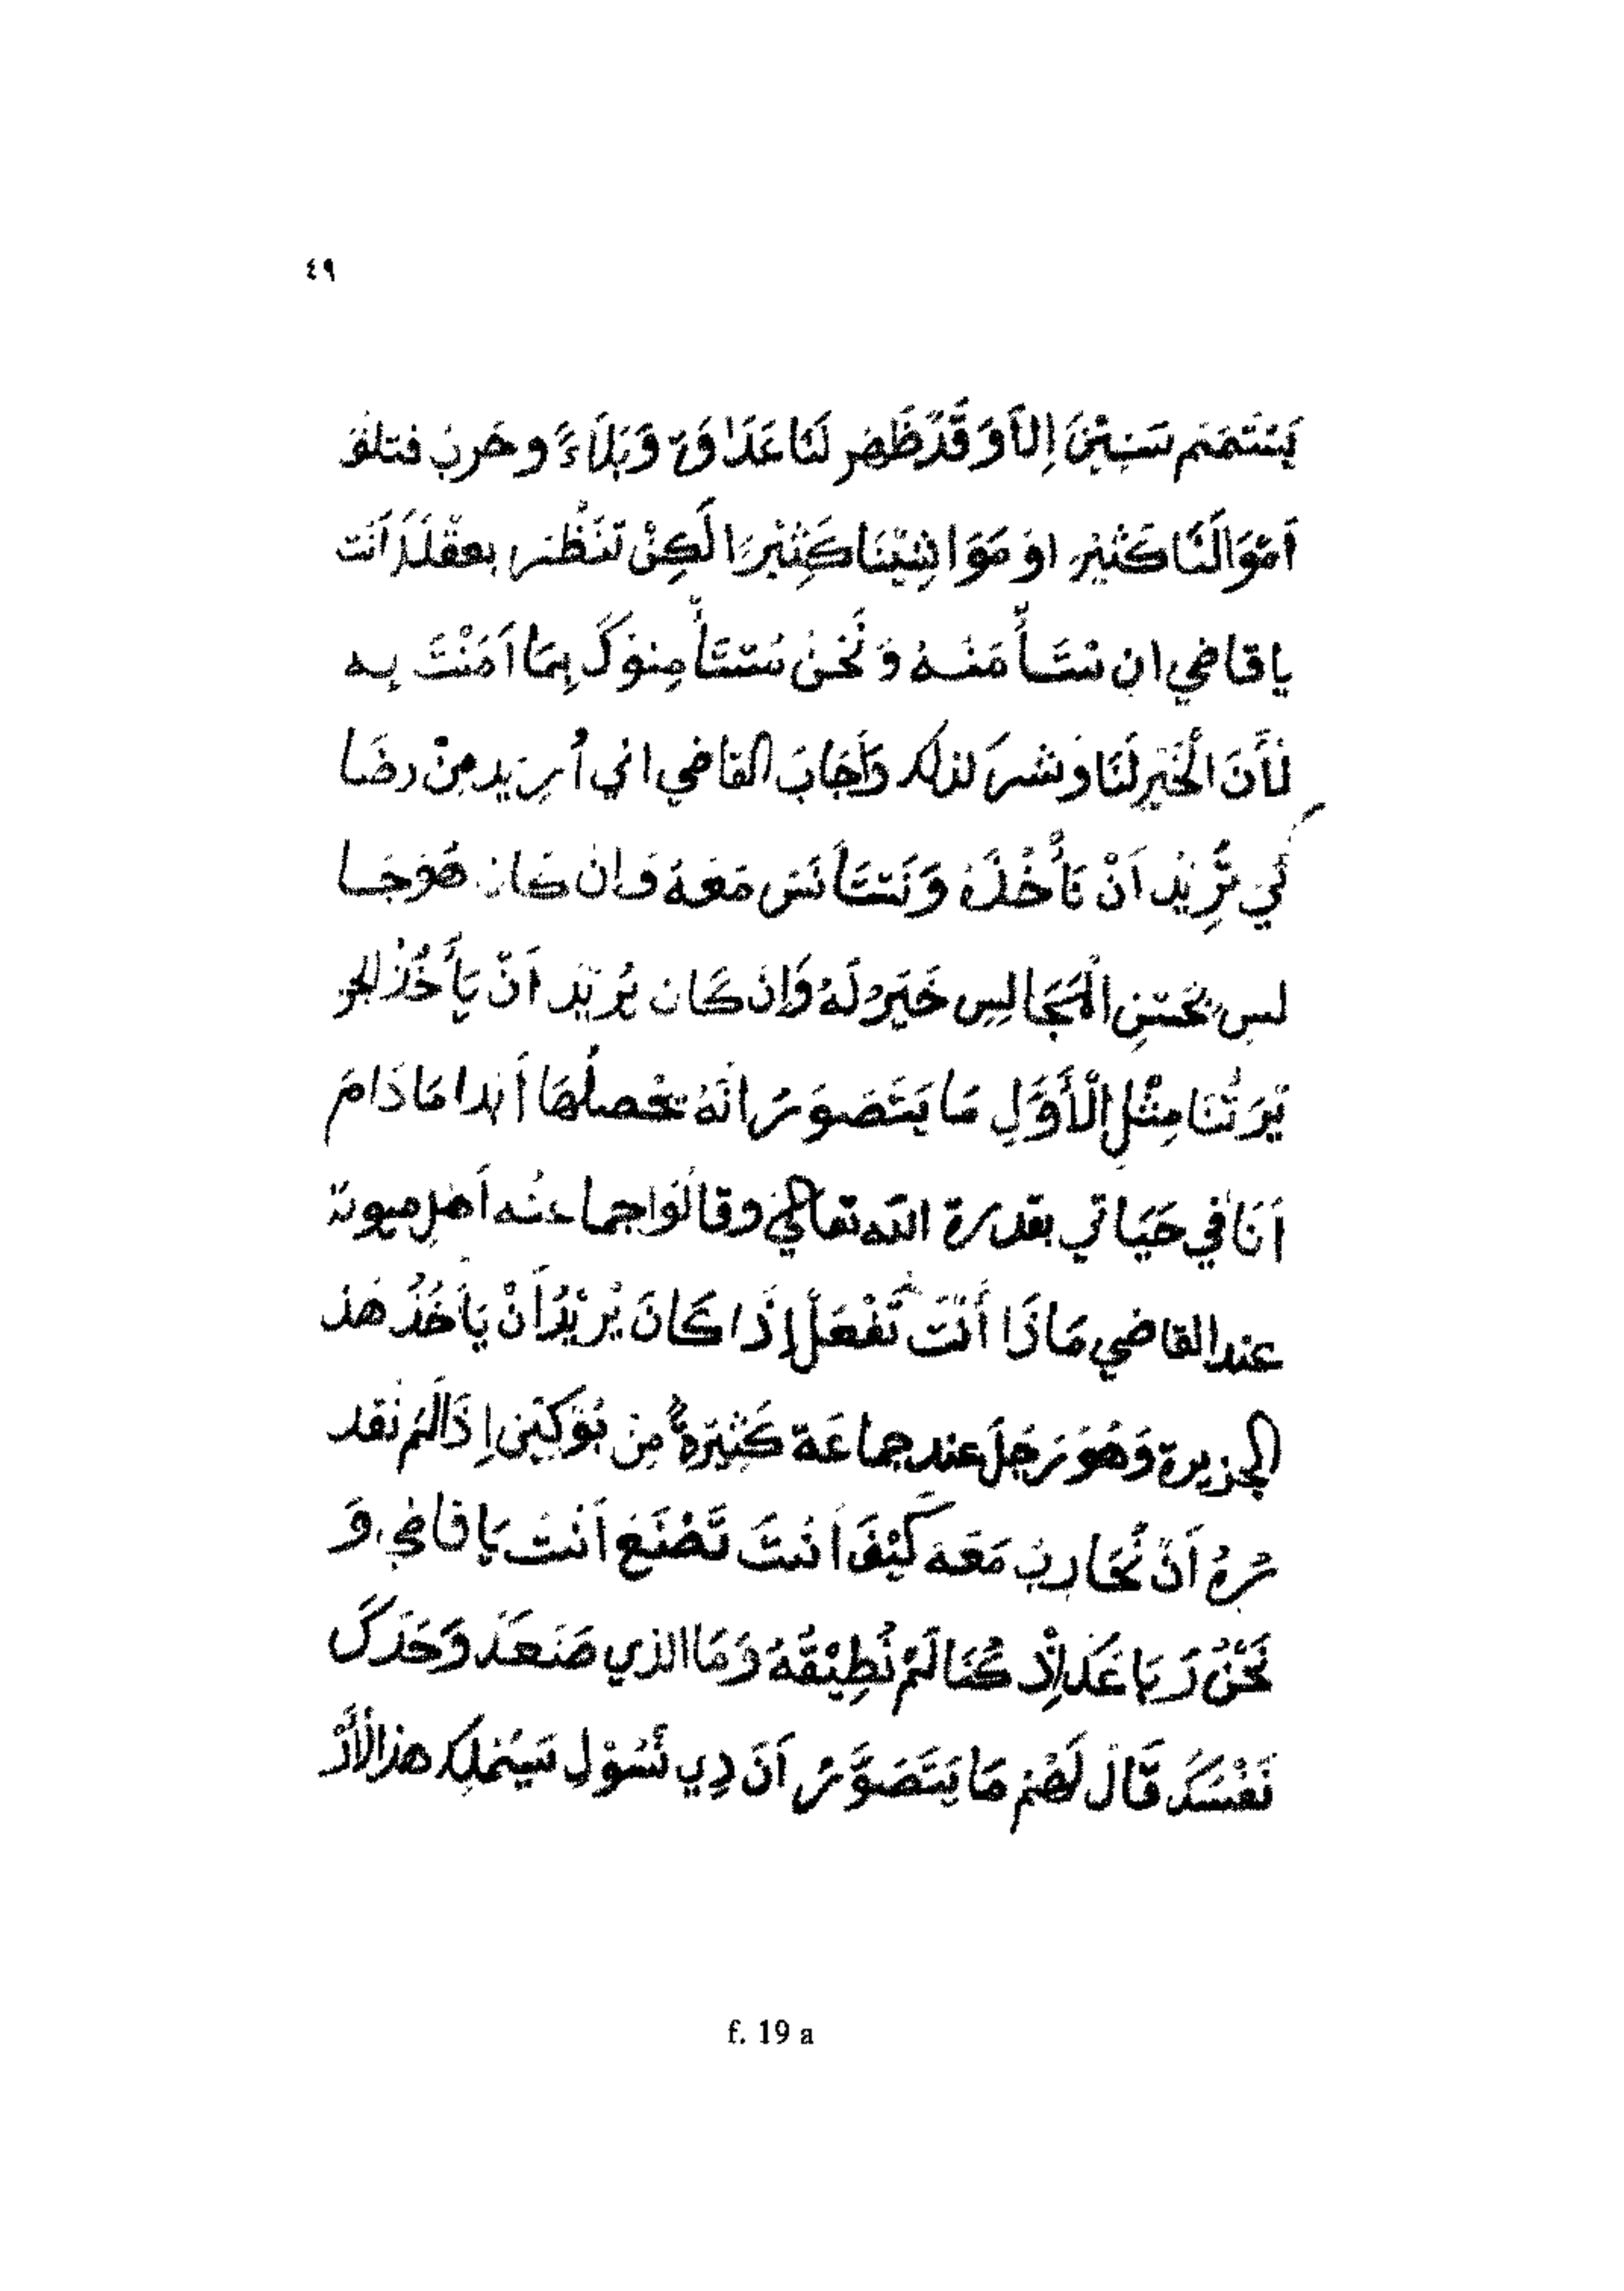 ٤٩
يَتَتَمَّمْ سَنِتِيْنَ إِلاَّ وَقَدْ ظَهَر لَنَا عَدَاوَةٌ وَبَلَاءً وحَربٌ فتلفَ
اَمْوَالَنَا كَثيْر اوْ مَوَاشِيْنَا كَثِيْرًا لَكِنْ تَنْظُر بعقْلَكَ اَنْت
يا قاضي ان نتَأمَنَهُ وَنَحْنُ نَتَأمِنُوكَ بِمَا اَمَنْتَ بِه
لأَنَ الْخَيْر لَنَا وَشر كذلك وَأَجَابَ القاضي اني أُرِيَد مِنْ رضَا
كَي تُرِيْد اَنْ نَأْخُذَهُ وَنَتَأنَسْ مَعَهُ فَان كَان هُوَ جَا
لس تَحْتَنِ الْمَجَالِس خَيْر لَهُ وَاِن كَان يُريْد اَنْ يَأْخُذ الجز
يْرَتُنَا مِثْل الْأَوَّلِ مَا يَتَصَوَر انَّهُ يحْصلُهَا أَبَدا مَا دَامَ
اَنَا في حَيَاتي بقدرة الله تعالى وقالوا جماعته اَهل ميوتة
عند القاضي مَاذَا أَنْتَ تَفْعَلْ إِذَا كَانَ يُرِيْدُ أَنْ يَأخُذُ هَذ
الجزيرة وَهُوَ رَجُلَ عند جماعَة كَثِيْرَةٌ مِن بُوْكِيْن اِذَا لَمْ نقد
رُهُ اَنْ نُحَارِبْ مَعَهَ كَيْفَ اَنْتَ تَصْنَعَ اَنْتَ يَا قَاضِي وَ
نَحْنُ رَبَاعَكَ اِذ كُنَا لَمْ نُطِيْقُهُ وَمَا الذي صَنَعَكَ وَحَدَكَ
نَفْسَكَ قَالَ لَهُمْ مَا يَتَصَوَّرُ اَنَ دِي نَسُوْل سَيُمْلِك هذا الْأَرْ
f. 19 a